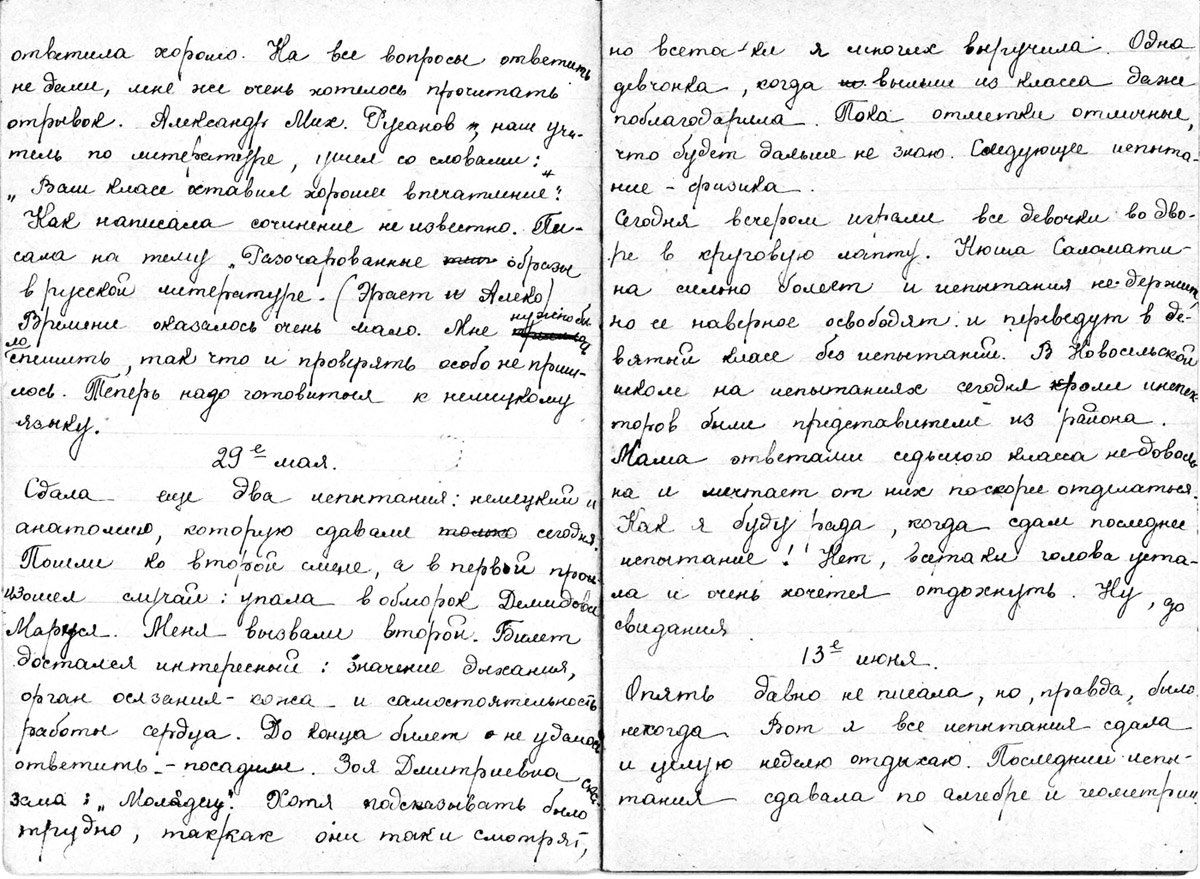 ответила хорошо. На все вопросы ответить
не дали, мне же очень хотелось прочитать
отрывок. Александр Мих. Русанов, наш учи-
тель по литературе, ушел со словами:
„Ваш класс оставил хорошее впечатление".
Как написала сочинение не известно. Пи-
сала на тему „Разочарованные образы
в русской литературе. (Эраст и Алеко)
Времени оказалось очень мало. Мне нужно бы-
ло спешить, так что и проверять особо не приш-
лось. Теперь надо готовиться к немецкому
языку.
29е мая.
Сдала еще два испытания: немецкий и
анатомию, которую сдавали сегодня.
Пошли ко второй смене, а в первой прои-
изошел случай: упала в обморок Демидова
Маруся. Меня вызвали второй. Билет
достался интересный: значение дыхания,
орган осязания - кожа и самостоятельность
работы сердца. До конца билет не удалось
ответить - посадили. Зоя Дмитриевна ска-
зала: „Молодец". Хотя подсказывать было
трудно, так как они так и смотрят,
но всетo-ки я многих выручила. Одна
девчонка, когда вышли из класса даже
поблагодарила. Пока отметки отличные,
что будет дальше не знаю. Следующее испыта-
ние - физика.
Сегодня вечером играли все девочки во дво-
ре в круговую лапту. Нюша Саломати-
на сильно болеет и испытания не держит,
но ее наверное освободят и переведут в де-
вятый класс без испытаний. В Новосельской
школе на испытаниях сегодня кроме инспек
торов были представители из района.
Мама ответами седьмого класса не доволь
на и мечтает от них поскорее отделаться.
Как я буду рада, когда сдам последнее
испытание! Нет, всетаки голова уста-
ла и очень хочется отдохнуть. Ну, до
свидания.
13е июня.
Опять давно не писала, но, правда, было
некогда. Вот я все испытания сдала
и целую неделю отдыхаю. Последний испы-
тания сдавала по алгебре и геометрии